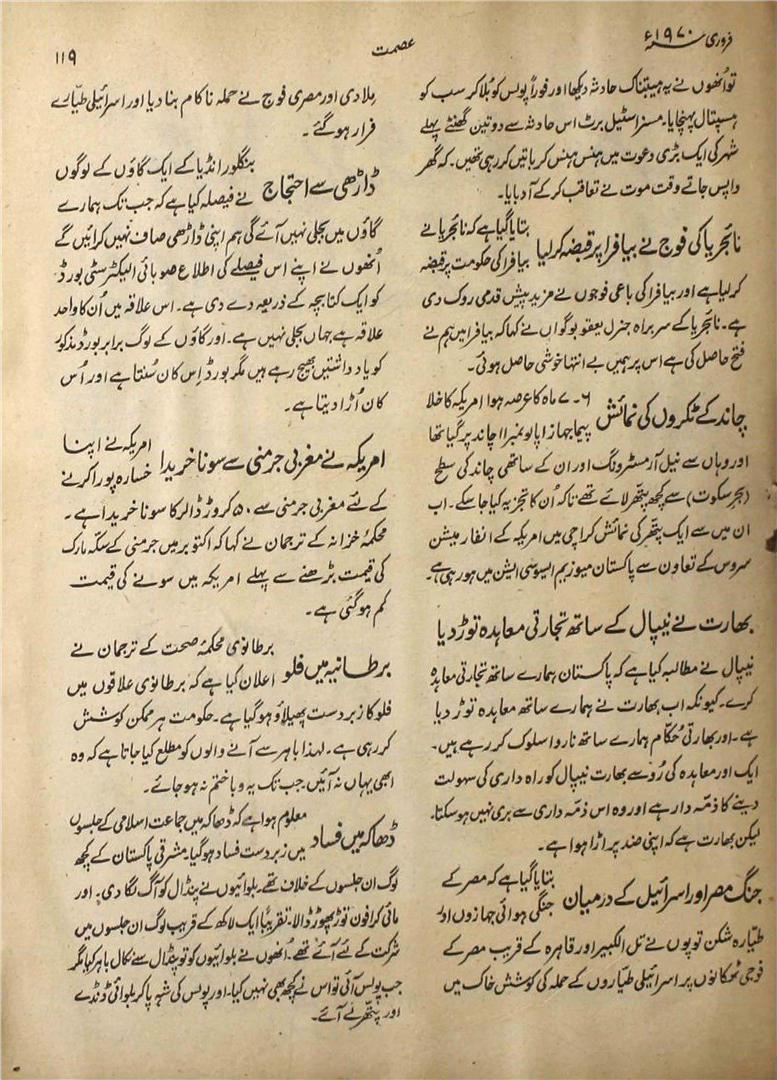 فروری ۱۹۷۰ء
عصمت
۱۱۹
تو اُنھوں نے یہ ہیبتناک حادثہ دیکھا اور فوراً پولس کو بُلا کر سب کو
ہسپتال پہنچایا۔ مسز اسٹیل برٹ اس حادثہ سے دو تین گھنٹے پہلے
شہر کی ایک بڑی دعوت میں ہنس ہنس کر باتیں کر رہی تھیں۔ کہ گھر
واپس جاتے وقت موت نے تعاقب کر کے آ دبایا۔
نائجریا کی فوج نے بیافرا پر قبضہ کر لیا
بتایا گیا ہے کہ نائجریا نے
بیافرا کی حکومت پر قبضہ
کر لیا ہے اور بیافرا کی باغی فوجوں نے مزید پیش قدمی روک دی
ہے۔ نائجریا کے سربراہ جنرل یعقوبو گواں نے کہا کہ بیافرا میں ہم نے
فتح حاصل کی ہے اس پر ہمیں بے انتہا خوشی حاصل ہوئی۔
چاند کے ٹکروں کی نمائش
۶۔ ۷ ماہ کا عرصہ ہوا امریکہ کا خلا
پیما جہاز اپالو نمبر ۱۱ چاند پر گیا تھا
اور وہاں سے نیل آرمسٹرونگ اور ان کے ساتھی چاند کی سطح
(بحرِ سکوت) سے کچھ پتھر لائے تھے تاکہ اُن کا تجزیہ کیا جا سکے۔ اب
ان میں سے ایک پتھر کی نمائش کراچی میں امریکہ کے انفارمیشن
سروس کے تعاون سے پاکستان میوزیم ایسوسی ایشن میں ہو رہی ہے۔
بھارت نے نیپال کے ساتھ تجارتی معاہدہ توڑ دیا
نیپال نے مطالبہ کیا ہے کہ پاکستان ہمارے ساتھ تجارتی معاہدہ
کرے۔ کیونکہ اب بھارت نے ہمارے ساتھ معاہدہ توڑ دیا
ہے۔ اور بھارتی حُکّام ہمارے ساتھ ناروا سلوک کر رہے ہیں۔
ایک اور معاہدہ کی رُو سے بھارت نیپال کو راہ داری کی سہولت
دینے کا ذمّہ دار ہے اور وہ اس ذمّہ داری سے بری نہیں ہو سکتا۔
لیکن بھارت ہے کہ اپنی ضد پر اڑا ہوا ہے۔
جنگ مصر اور اسرائیل کے درمیان
بتایا گیا ہے کہ مصر کے
جنگی ہوائی جہازوں اور
طیّارہ شکن توپوں نے تل الکبیر اور قاہرہ کے قریب مصر کے
فوجی ٹھکانوں پر اسرائیلی طیّاروں کے حملہ کی کوشش خاک میں
مِلا دی اور مصری فوج نے حملہ ناکام بنا دیا اور اسرائیلی طیّارے
فرار ہو گئے۔
ڈاڑھی سے احتجاج
بنگلور انڈیا کے ایک گاؤں کے لوگوں
نے فیصلہ کیا ہے کہ جب تک ہمارے
گاؤں میں بجلی نہیں آئے گی ہم اپنی ڈاڑھی صاف نہیں کرائیں گے
اُنھوں نے اپنے اس فیصلے کی اطلاع صوبائی الیکٹرسٹی بورڈ
کو ایک کتابچہ کے ذریعہ دے دی ہے۔ اس علاقہ میں اُن کا واحد
علاقہ ہے جہاں بجلی نہیں ہے۔ اور گاؤں کے لوگ برابر بورڈ مذکور
کو یادداشتیں بھیج رہے ہیں مگر بورڈ اِس کان سُنتا ہے اور اُس
کان اُڑا دیتا ہے۔
امریکہ نے مغربی جرمنی سے سونا خریدا
امریکہ نے اپنا
خسارہ پورا کرنے
کے لئے مغربی جرمنی سے ۵۰ کروڑ ڈالر کا سونا خریدا ہے۔
محکمۂ خزانہ کے ترجمان نے کہا کہ اکتوبر میں جرمنی کے سکّہ مارک
کی قیمت بڑھنے سے پہلے امریکہ میں سونے کی قیمت
کم ہو گئی ہے۔
برطانیہ میں فلو
برطانوی محکمۂ صحت کے ترجمان نے
اعلان کیا ہے کہ برطانوی علاقوں میں
فلو کا زبردست پھیلاؤ ہو گیا ہے۔ حکومت ہر ممکن کوشش
کر رہی ہے۔ لہٰذا باہر سے آنے والوں کو مطلع کیا جاتا ہے کہ وہ
ابھی یہاں نہ آئیں جب تک یہ وبا ختم نہ ہو جائے۔
ڈھاکہ میں فساد
معلوم ہوا ہے کہ ڈھاکہ میں جماعت اسلامی کے جلسوں
میں زبردست فساد ہو گیا۔ مشرقی پاکستان کے کچھ
لوگ ان جلسوں کے خلاف تھے۔ بلوائیوں نے پنڈال کو آگ لگا دی۔ اور
مائیکرافون توڑ پھوڑ ڈالا۔ تقریباً ایک لاکھ کے قریب لوگ ان جلسوں میں
شرکت کے لئے آئے تھے۔ اُنھوں نے بلوائیوں کو تو پنڈال سے نکال باہر کیا مگر
جب پولس آئی تو اس نے کچھ بھی نہیں کیا۔ اور پولس کی شہ پا کر بلوائی ڈنڈے
اور پتھر لے آئے۔